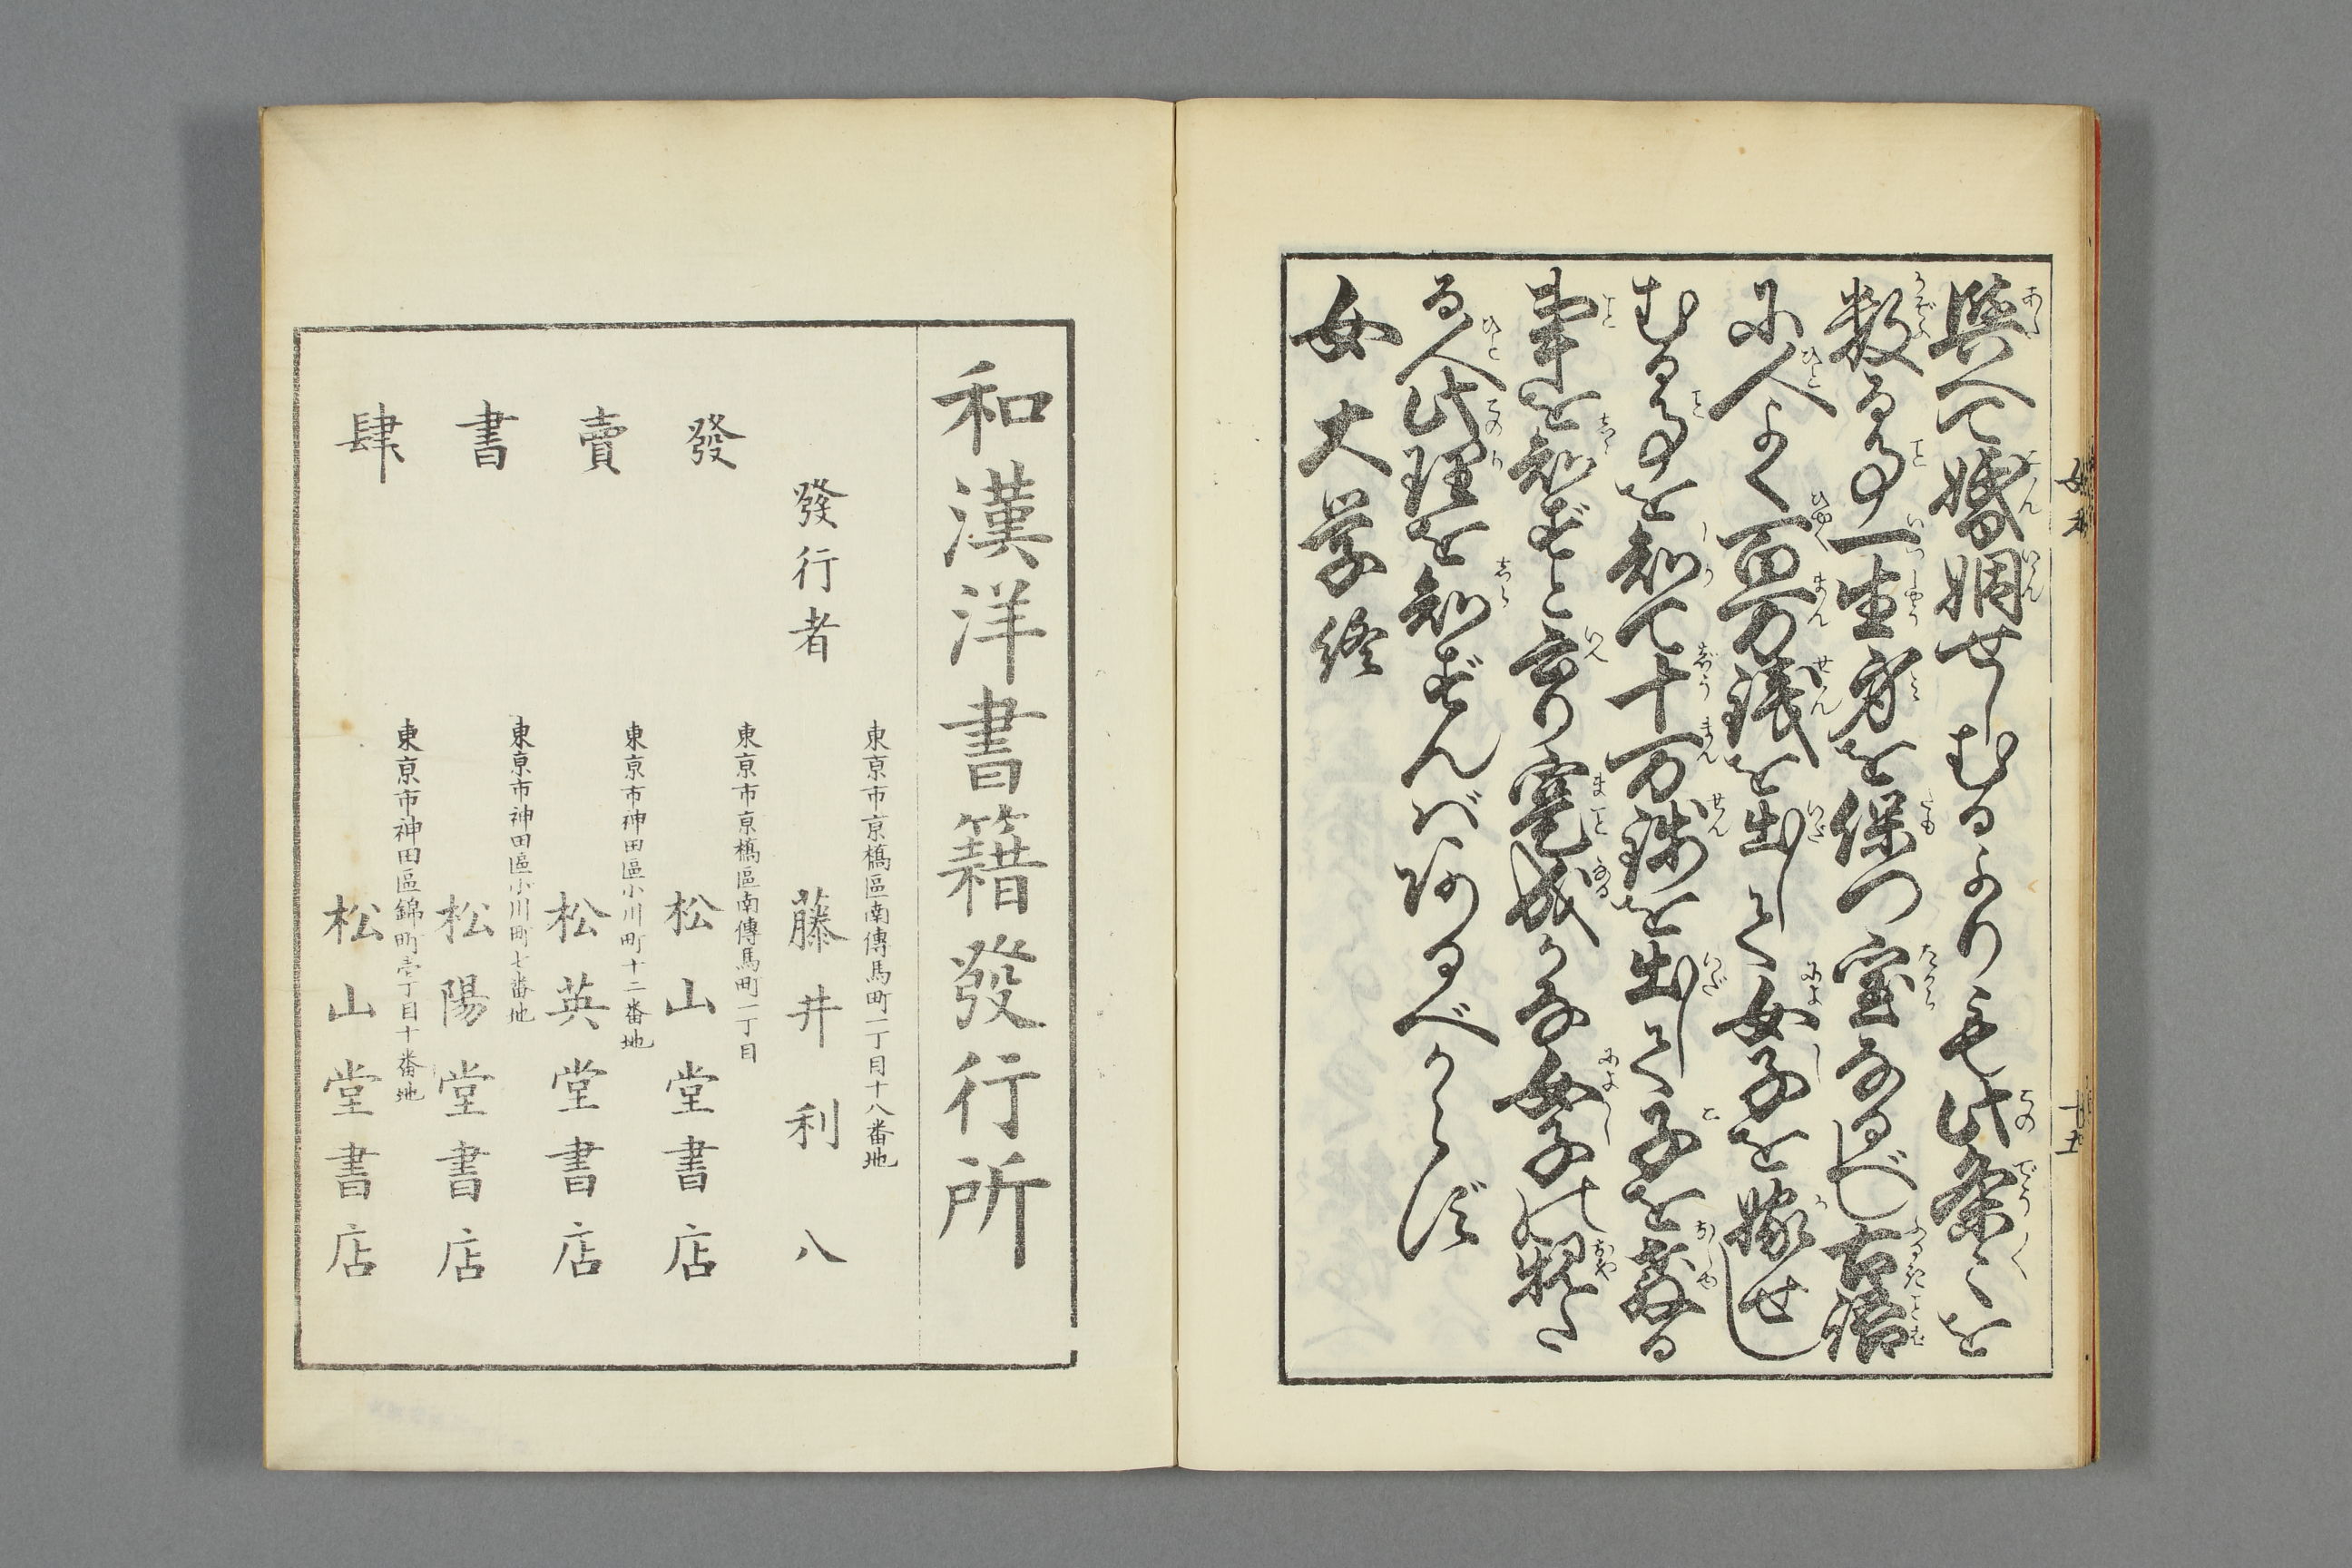 與へて婚姻せしむるよりも此条々を
数る事一生身を保つ宝なるべし古語
に人よく百万銭を出して女子を嫁せし
むる事を知て十万銭を出して子を教る
事を知ずと云り寔成かな女子の親た
る人此理を知ずんば阿るべからず
女大学終
十五
和漢洋書籍發行所
東京市京橋區南傳馬町一丁目十八番地
發行者 藤井利八
發賣書肆
東京市京橋區南傳馬町一丁目
松山堂書店
東京市神田區小川町十二番地
松英堂書店
東京市神田區小川町七番地
松陽堂書店
東京市神田區錦町壱丁目十番地
松山堂書店